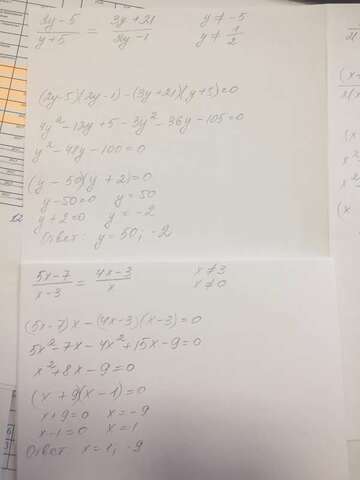 2y-5/y+5 = 3y+21/2y-1 y≠-5
y≠1/2
(2y-5)(2y-1)-(3y+21)(y+5)=0
4y²-12y+5-3y²-36y-105=0
y²-48y-100=0
(y-50)(y+2)=0
y-50=0 y=50
y+2=0 y=-2
Ответ: y=50; -2
5x-7/x-3 = 4x-3/x x≠3
x≠0
(5x-7)x-(4x-3)(x-3)=0
5x²-7x-4x²+15x-9=0
x²+8x-9=0
(x+9)(x-1)=0
x+9=0 x=-9
x-1=0 x=1
Ответ x=1; -9